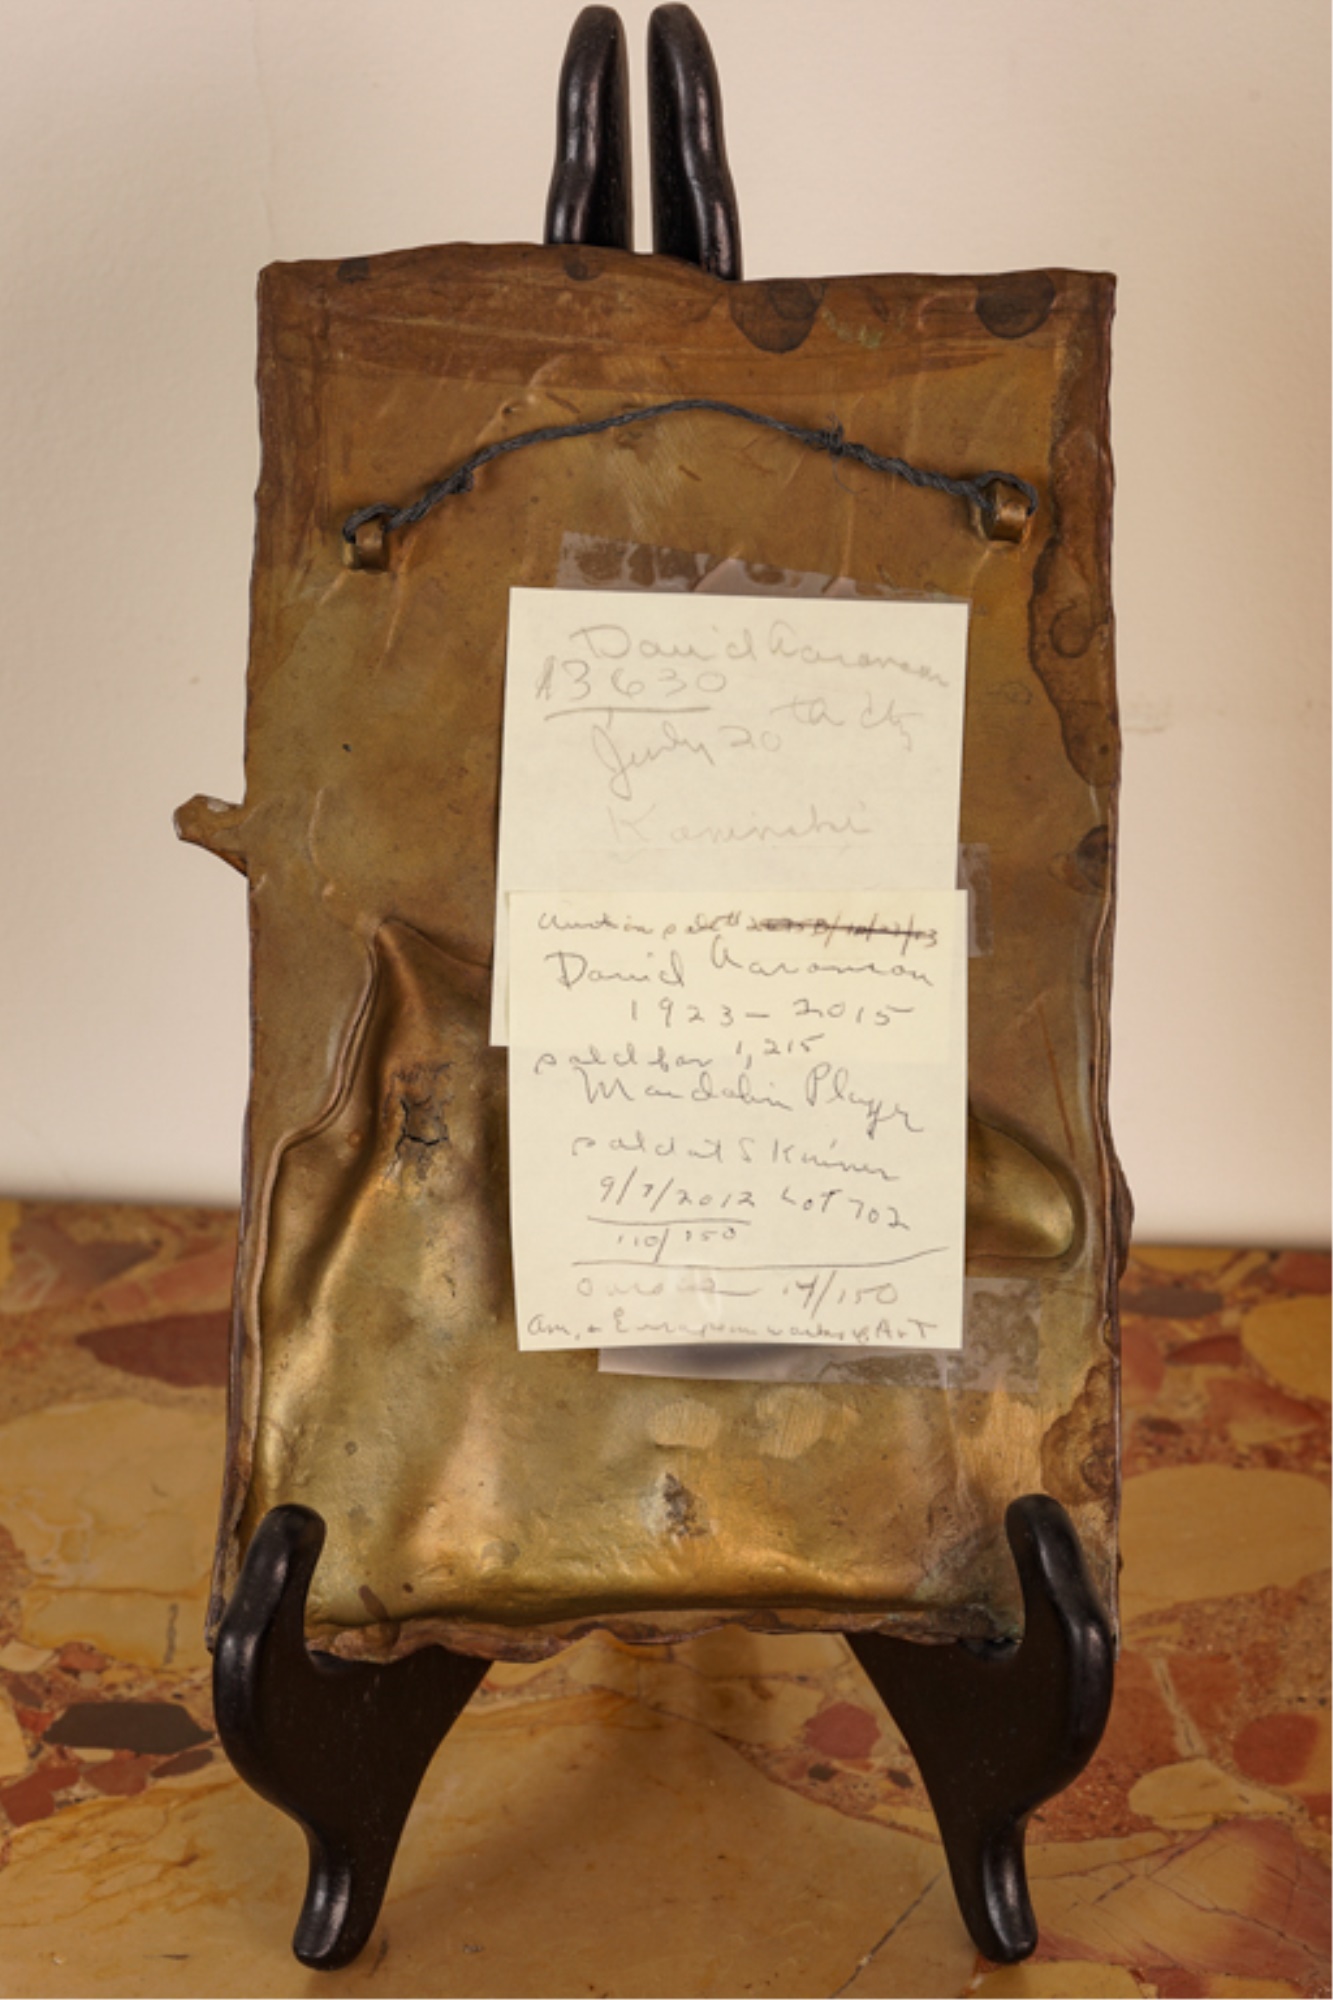 David Aaronson
A3630
July 20
Kaminski
Auction sale #
David Aaronson
1923 – 2015
sold for 1,215
Mandolin Player
sold at Skinner
9/7/2012 LOT 702
110/150
ours 14/150
Am. & European works of ArT